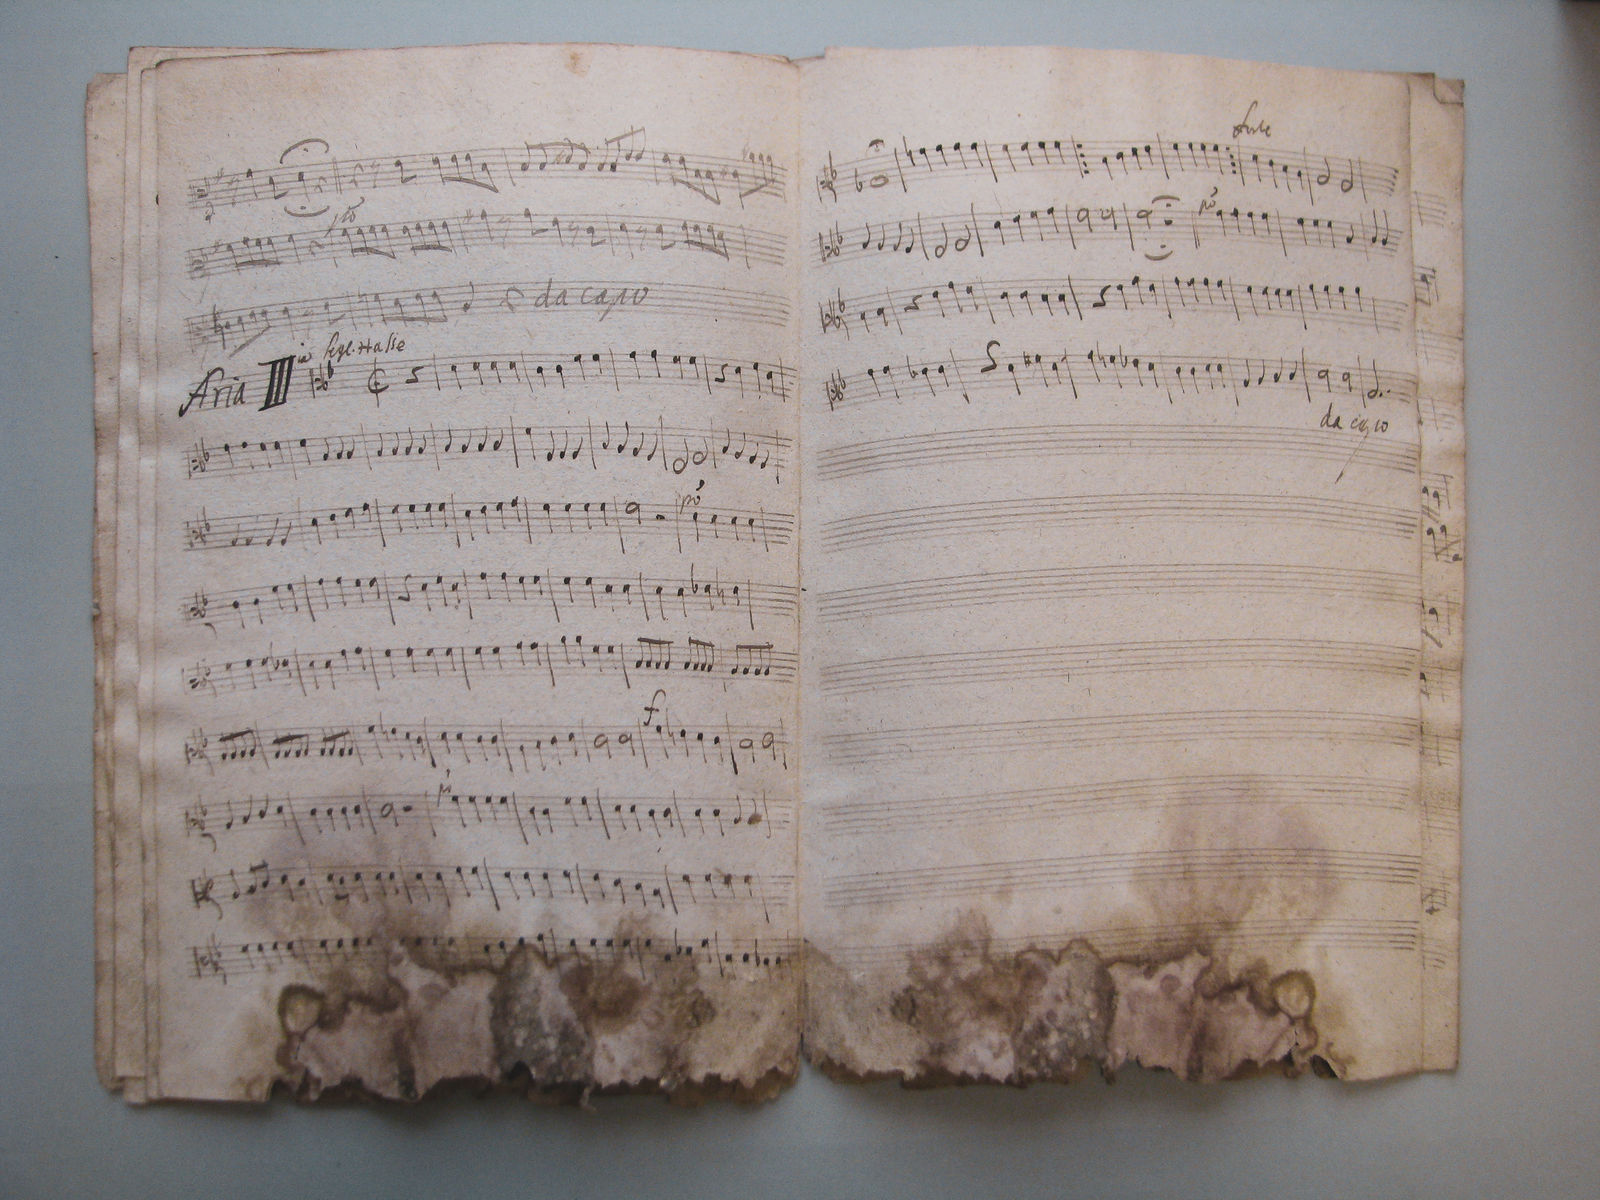 po
da capo
Aria III ia Sgl. Hasse
po
f
p
forte
po
da capo